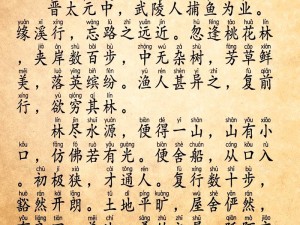 晋太元中，武陵人捕鱼为业。
yuán xī xíng wàng lù zhī yuǎn jìn hū féng táo huā lín
缘溪行，忘路之远近。忽逢桃花林
jiā àn shù bǎi bù zhōng wú zá shù fāng cǎo xiān
，夹岸数百步，中无杂树，芳草鲜
měi luò yīng bīn fēn yú rén shèn yì zhī fù qián
美，落英缤纷。渔人甚异之，复前
xíng yù qióng qí lín
行，欲穷其林。
lín jìn shuǐ yuán biàn dé yī shān shān yǒu xiǎo
林尽水源，便得一山，山有小
kǒu fǎng fú ruò yǒu guāng biàn shě chuán cóng kǒu rù
口，仿佛若有光。便舍船，从口入
chū jí xiá cái tōng rén fù xíng shù shí bù
。初极狭，才通人。复行数十步，
huò rán kāi lǎng tǔ dì píng kuàng wū shè yǎn rán
豁然开朗。土地平旷，屋舍俨然，